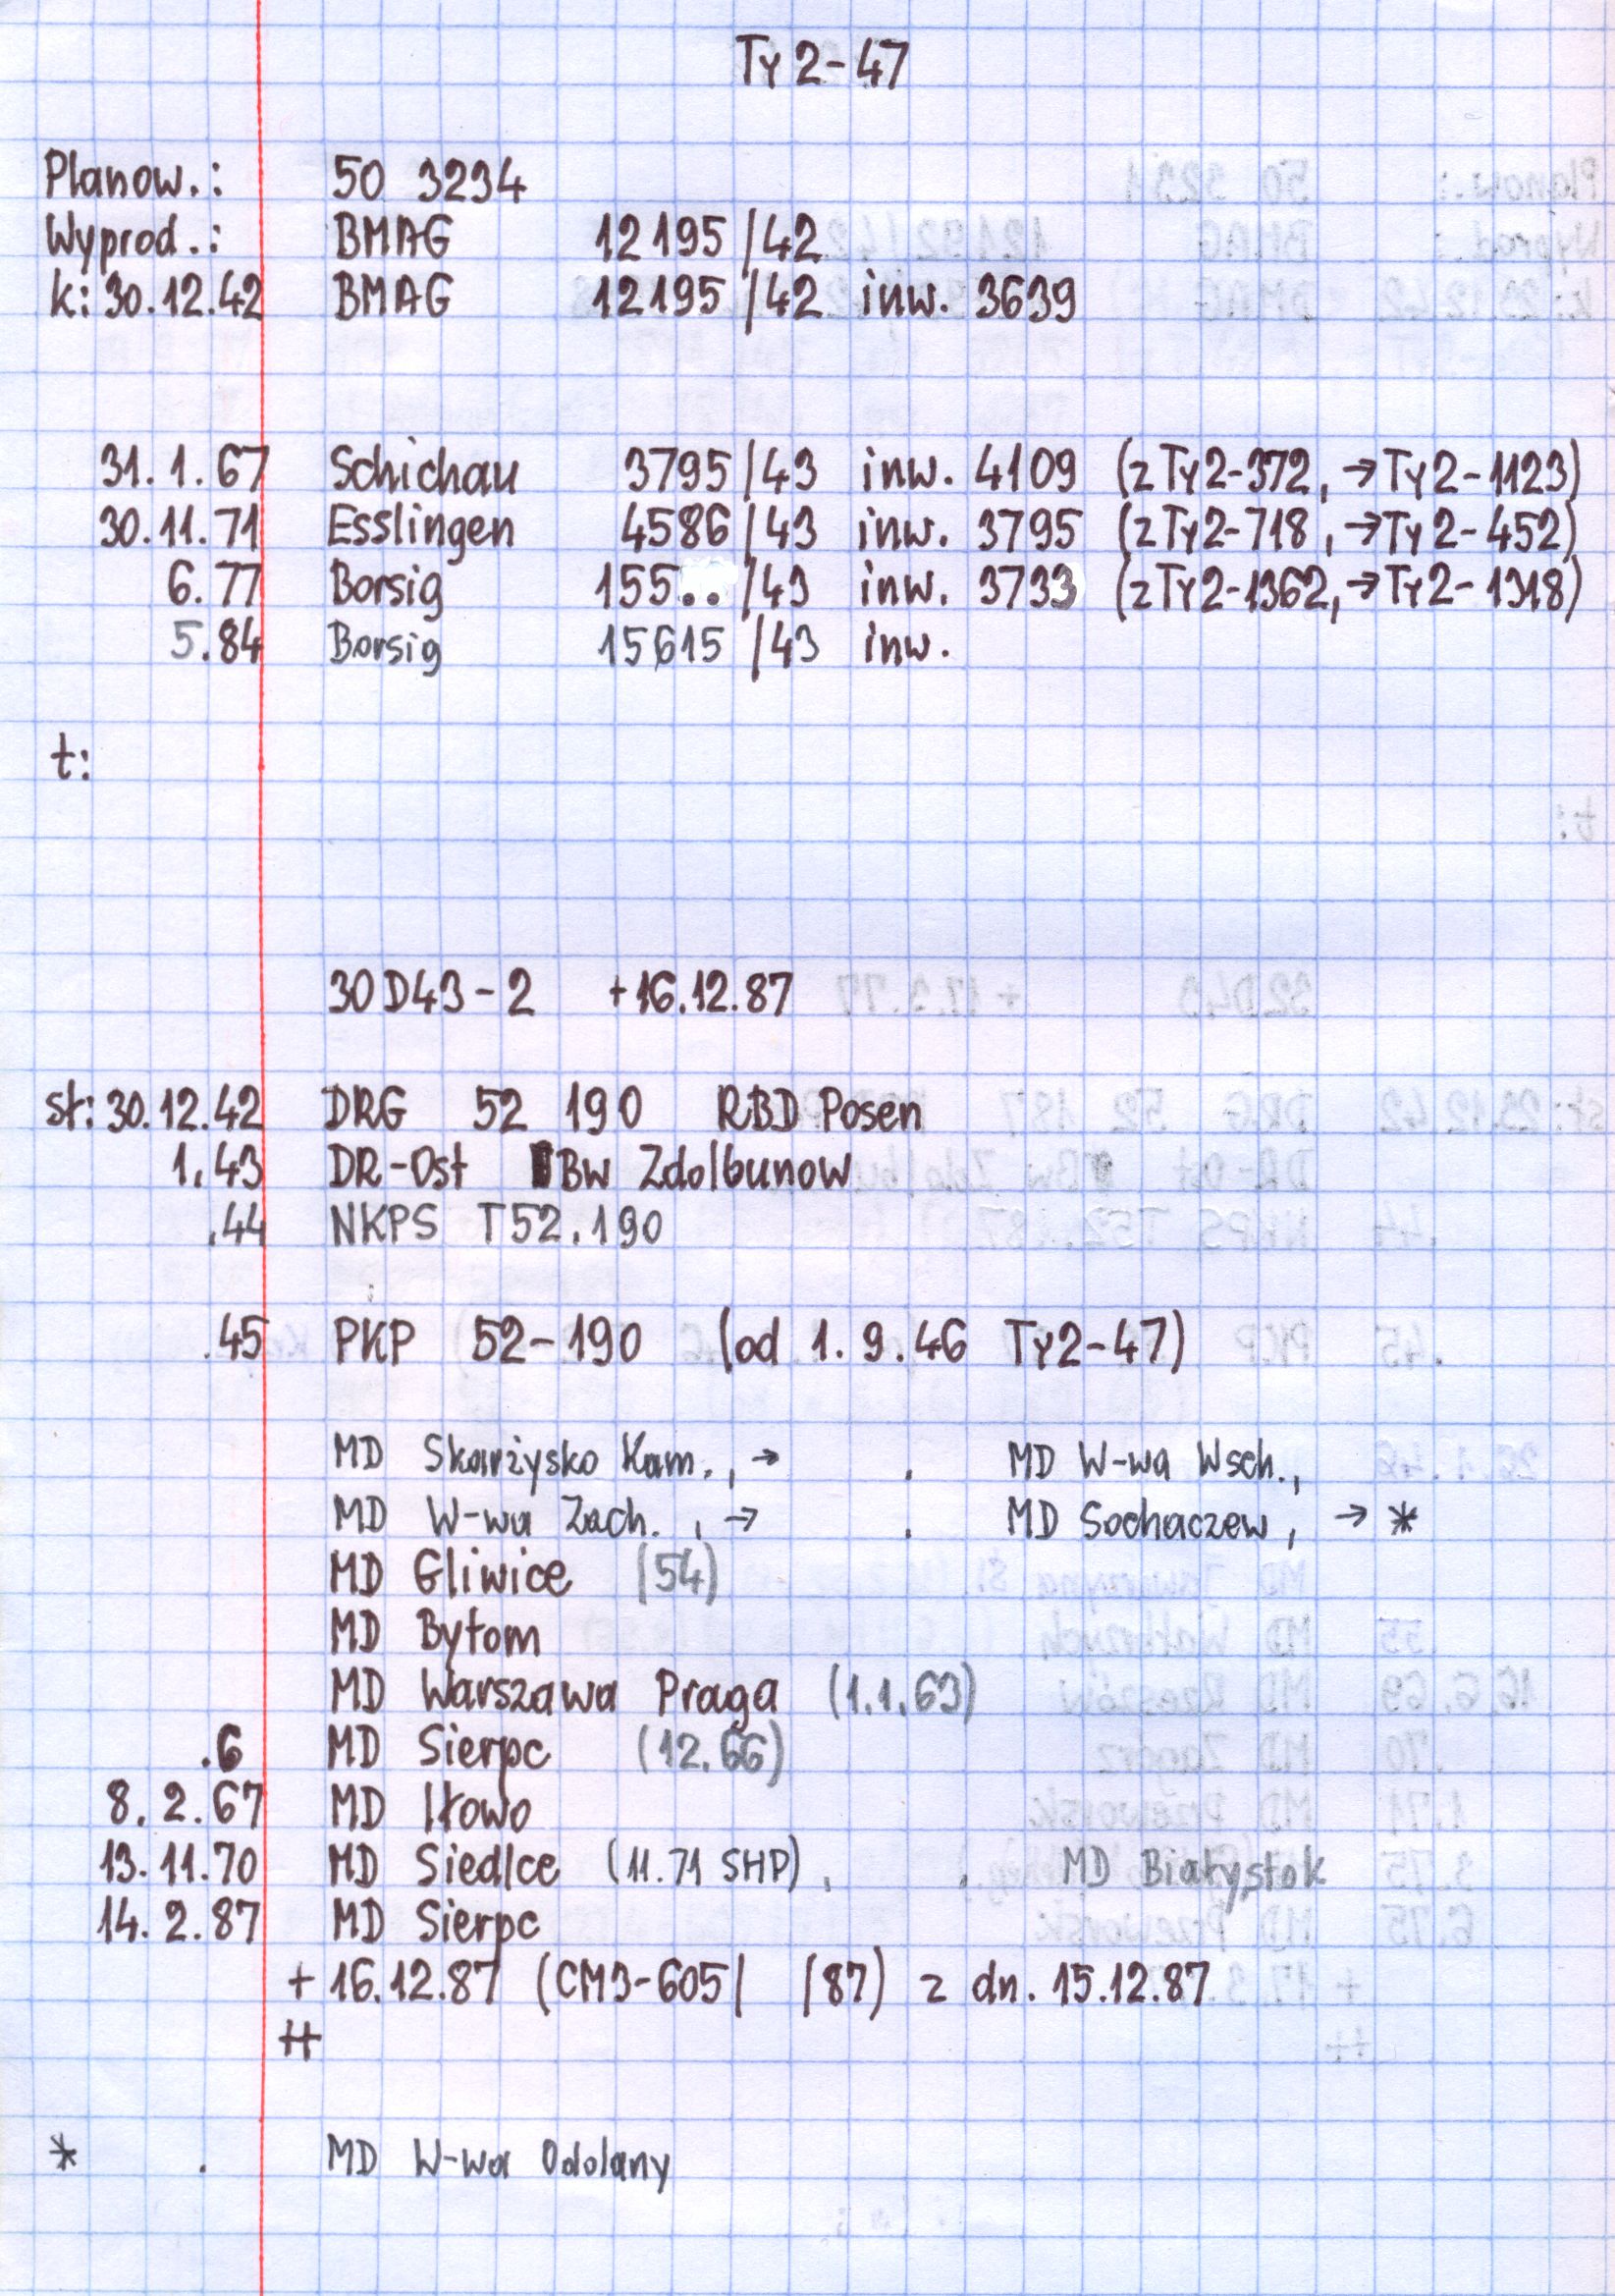 Ty2-47
Planow.: 50 3234
Wyprod.: BMAG 12195/42
k: 30.12.42 BMAG 12195/42 inw. 3639
31.1.67 Schichau 3795/43 inw. 4109 (z Ty2-372, →Ty2-1123)
30.11.71 Esslingen 4586/43 inw. 3795 (z Ty2-718, →Ty2-452)
6.77 Borsig 155../43 inw. 3733 (z Ty2-1362, →Ty2-1318)
5.84 Borsig 15615/43 inw.
t:
30D43-2 +16.12.87
st: 30.12.42 DRG 52 190 RBD Posen
1.43 DR-Ost Bw Zdolbunow
.44 NKPS T52.190
.45 PKP 52-190 (od 1.9.46 Ty2-47)
MD Skarżysko Kam., → . MD W-wa Wsch.,
MD W-wa Zach. , → . MD Sochaczew, → *
MD Gliwice (54)
MD Bytom
MD Warszawa Praga (1.1.63)
.6 MD Sierpc (12.66)
8.2.67 MD Iłowo
13.11.70 MD Siedlce (11.71 SHP), . MD Białystok
14.2.87 MD Sierpc
+ 16.12.87 (CM3-605/ /87) z dn. 15.12.87
++
* . MD W-wa Odolany